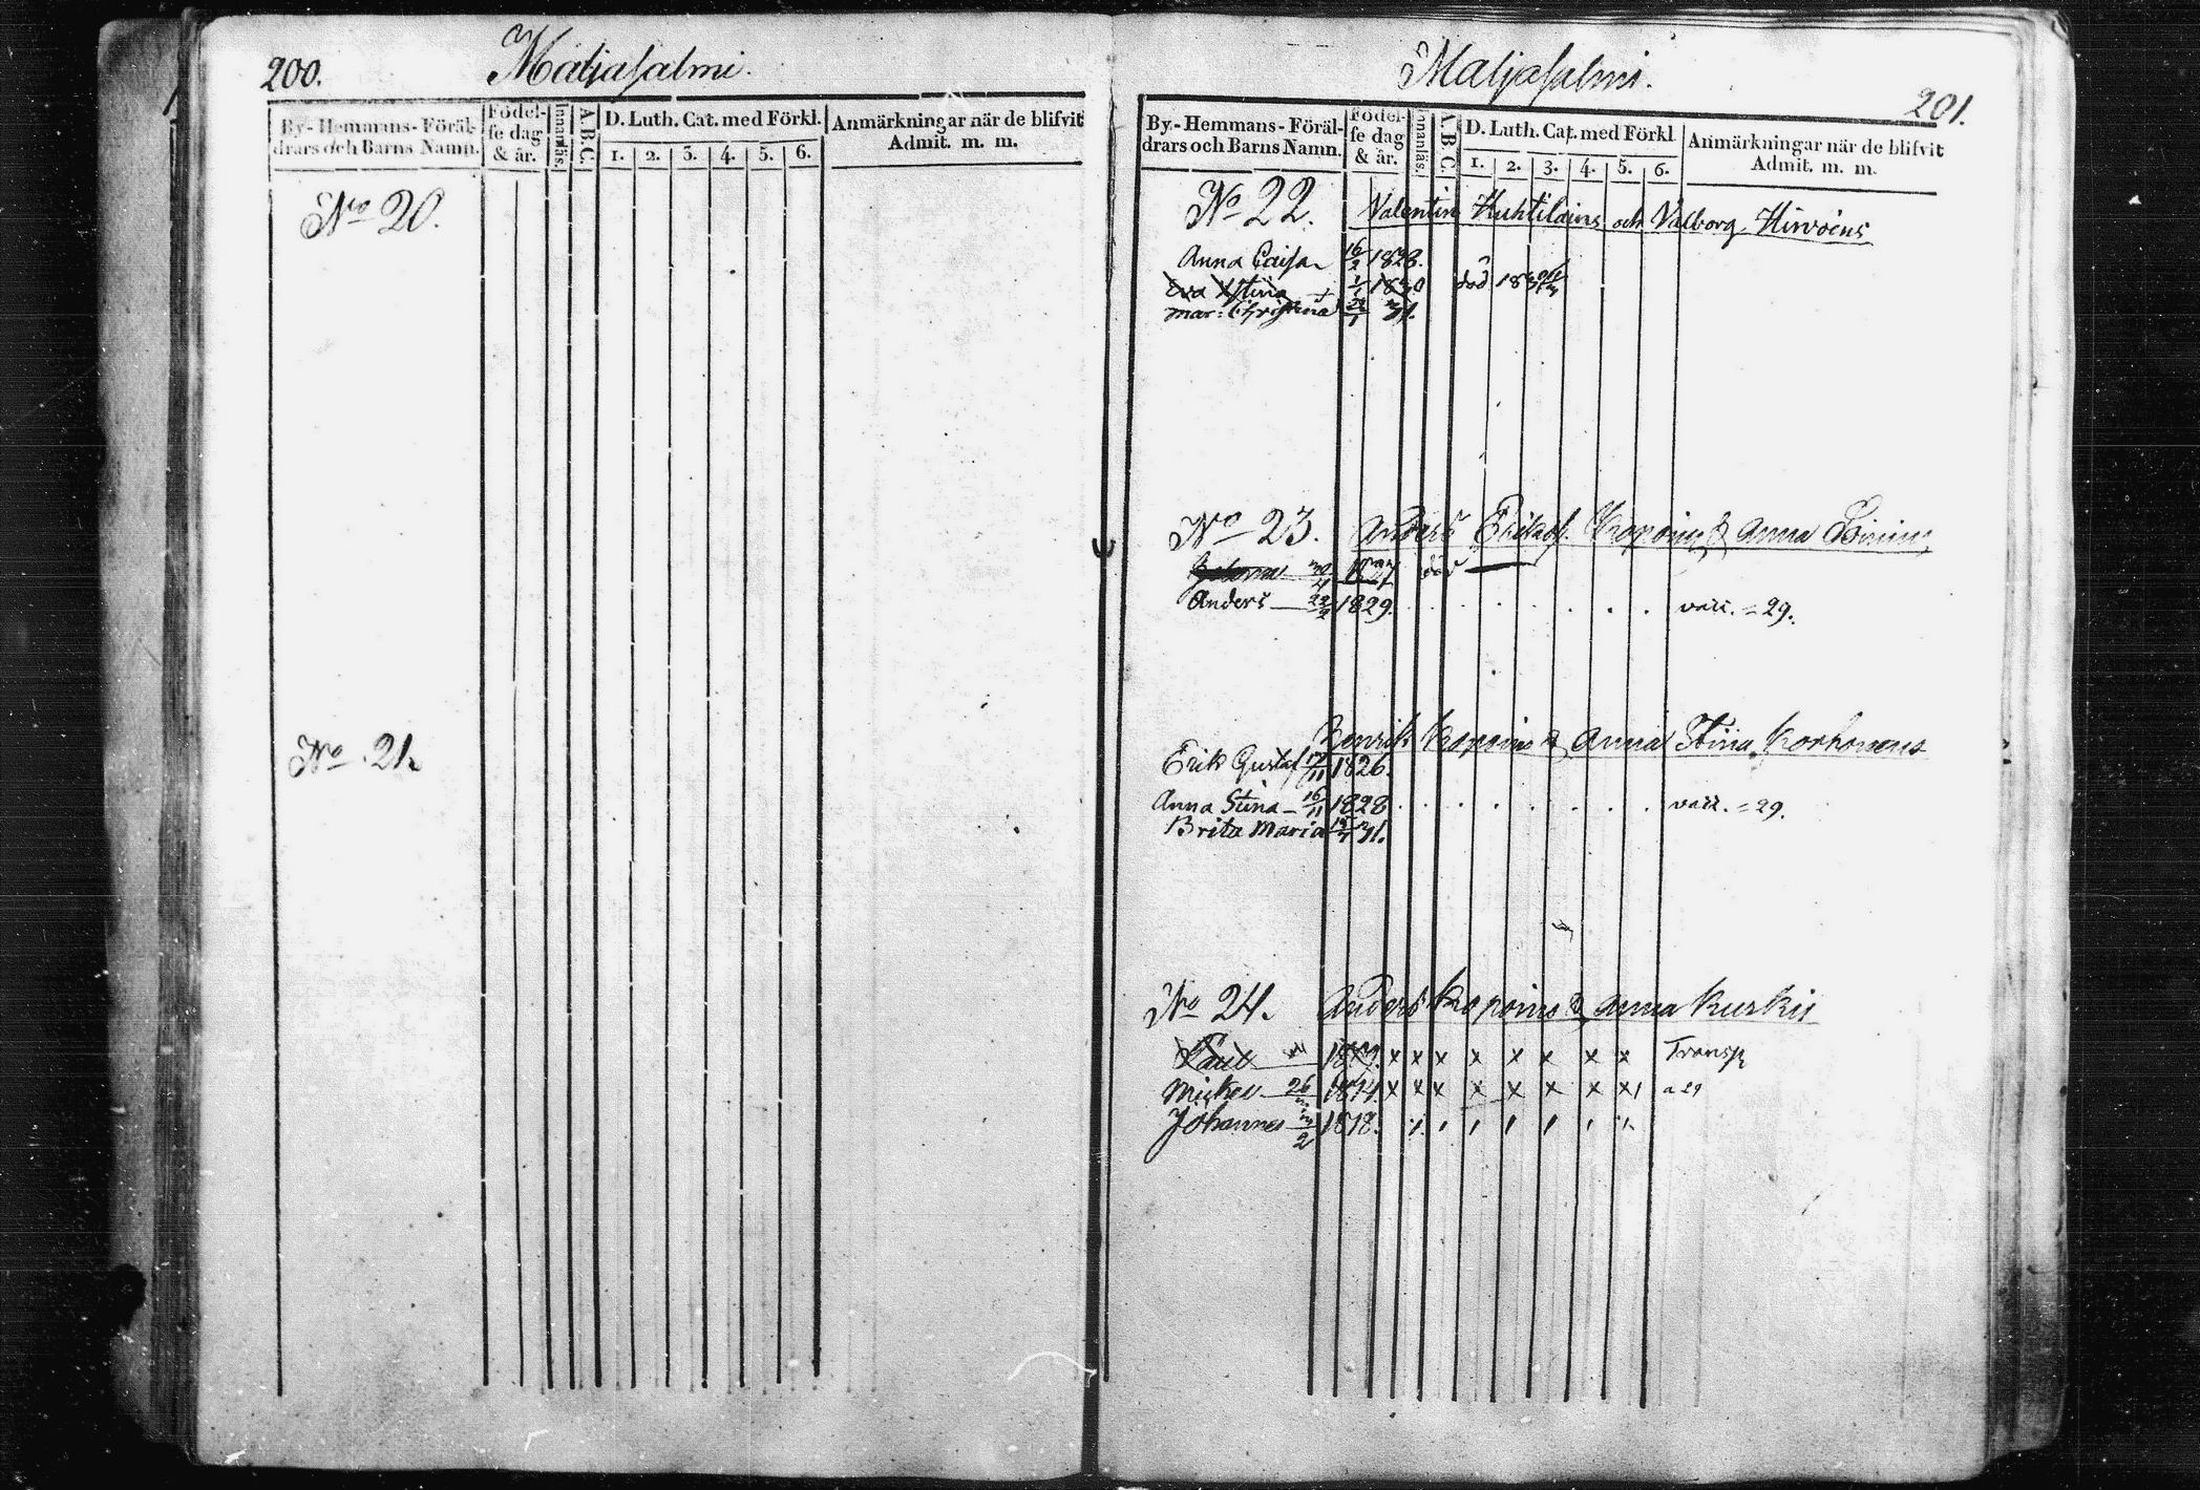 200.
Maljasalmi.
By- Hemmans- Föräl-
drars och Barns Namn.
Födel-
se dag
& år.
Innanläs.
A.B.C.
D. Luth. Cat. med Förkl.
1. 2. 3. 4. 5. 6.
Anmärkningar när de blifvit
Admit. m. m.
No 20.
No 21.
Maljasalmi.
201.
By- Hemmans- Föräl-
drars och Barns Namn.
Födel-
se dag
& år.
Innanläs.
A.B.C.
D. Luth. Cat. med Förkl.
1. 2. 3. 4. 5. 6.
Anmärkningar när de blifvit
Admit. m. m.
No 22. Valentin Huhtilains och Valborg Hirvoins
Anna Caisa 16/2 1828.
Eva Stina + 1/1 1830 död
mar: Christina 31.
No 23. Anders Anna
1827 död
Anders 22/2 1829. vacc. = 29.
Henrik Kopoins & Anna Stina Korhonens
Erik Gustaf 17/11 1826.
Anna Stina 16/11 1828 vacc. = 29.
Brita Maria 31.
No 24. Anders Kopoins & Anna Kurkis
x x x x x x x x Transp
Mickel 26 1814. x x x x x x x x a 29
Johannes 1818.